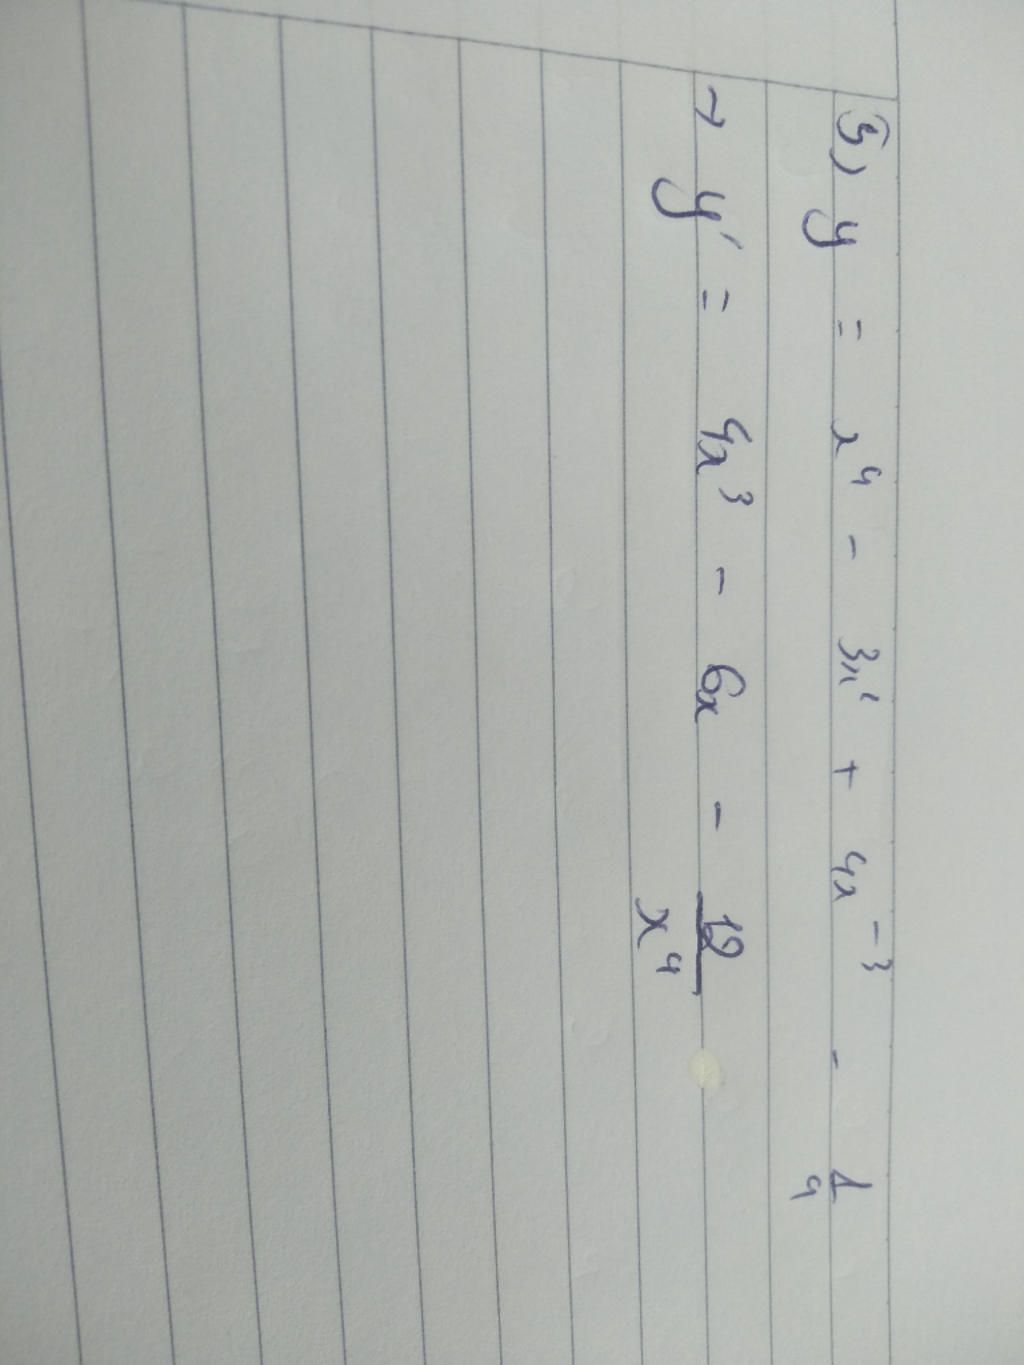 5) y = x⁴ - 3x² + 4x⁻³ - 1/4
→ y' = 4x³ - 6x - 12/x⁴